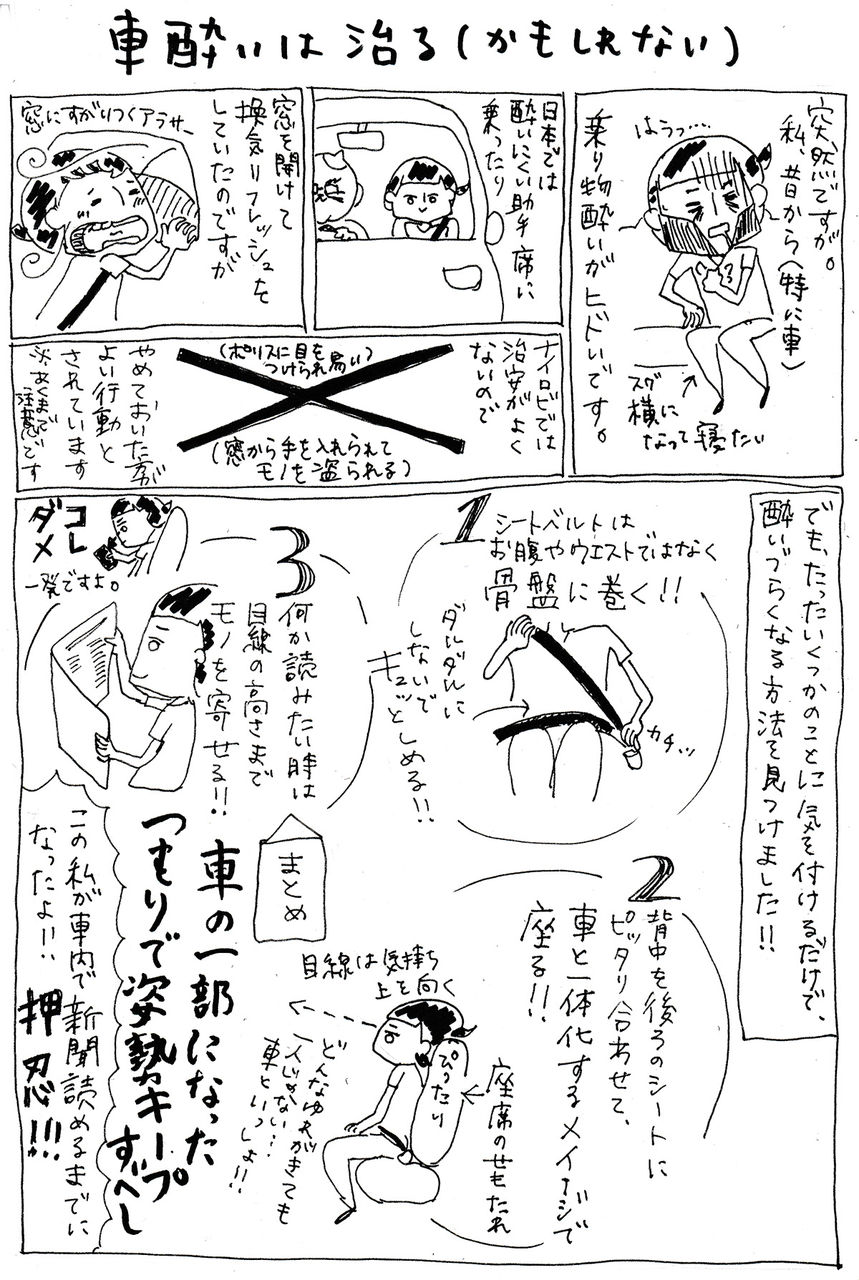 車酔いは治る(かもしれない)
突然ですが。
私、昔から(特に車)
乗り物酔いがヒドいです。
はうっ……
スグ
横に
なって寝たい
日本では
酔いにくい助手席に
乗ったり
窓を開けて
換気リフレッシュを
していたのですが
窓にすがりつくアラサー
ナイロビでは
治安がよく
ないので
(ポリスに目を
つけられ易い)
(窓から手を入れられて
モノを盗られる)
やめておいた方が
よい行動と
されています
※あくまで
注意です
でも、たったいくつかのことに気を付けるだけで、
酔いづらくなる方法を見つけました!!
1
シートベルトは
お腹やウエストではなく
骨盤に巻く!!
ダルダルに
しないで
キュッとしめる!!
カチッ
2
背中を後ろのシートに
ピッタリ合わせて、
車と一体化するメイージで
座る!!
目線は気持ち
上を向く
ぴったり
座席のせもたれ
どんなゆれがきても
一人じゃない…
車といっしょ!!
3
何か読みたい時は
目線の高さまで
モノを寄せる!!
コレ
ダメ
一発ですよ。
まとめ
車の一部になった
つもりで姿勢キープ
すべし
この私が車内で新聞読めるまでに
なったよ!!
押忍!!!